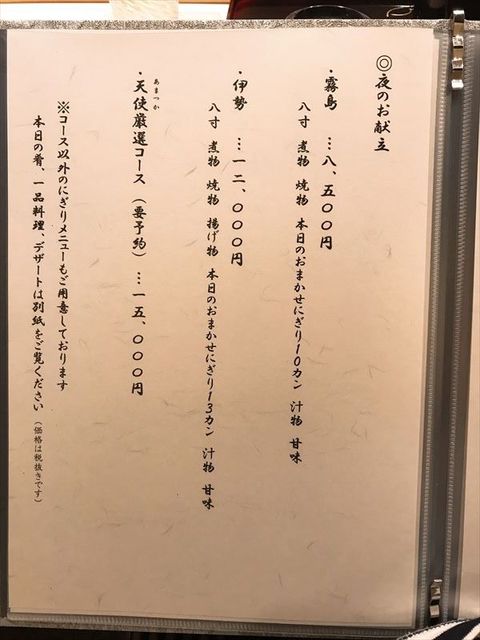 ◎夜のお献立
・霧島 …八、五〇〇円
八寸 煮物 焼物 本日のおまかせにぎり10カン 汁物 甘味
・伊勢 …一二、〇〇〇円
八寸 煮物 焼物 揚げ物 本日のおまかせにぎり13カン 汁物 甘味
あまつか
・天使厳選コース（要予約）…一五、〇〇〇円
※コース以外のにぎりメニューもご用意しております
本日の肴、一品料理、デザートは別紙をご覧ください（価格は税抜きです）